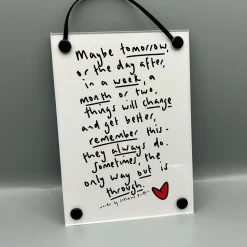 Maybe tomorrow,
or the day after,
in a week, a
month or two,
things will change
and get better,
remember this-
they always do.
Sometimes, the
only way out is
through.
words by